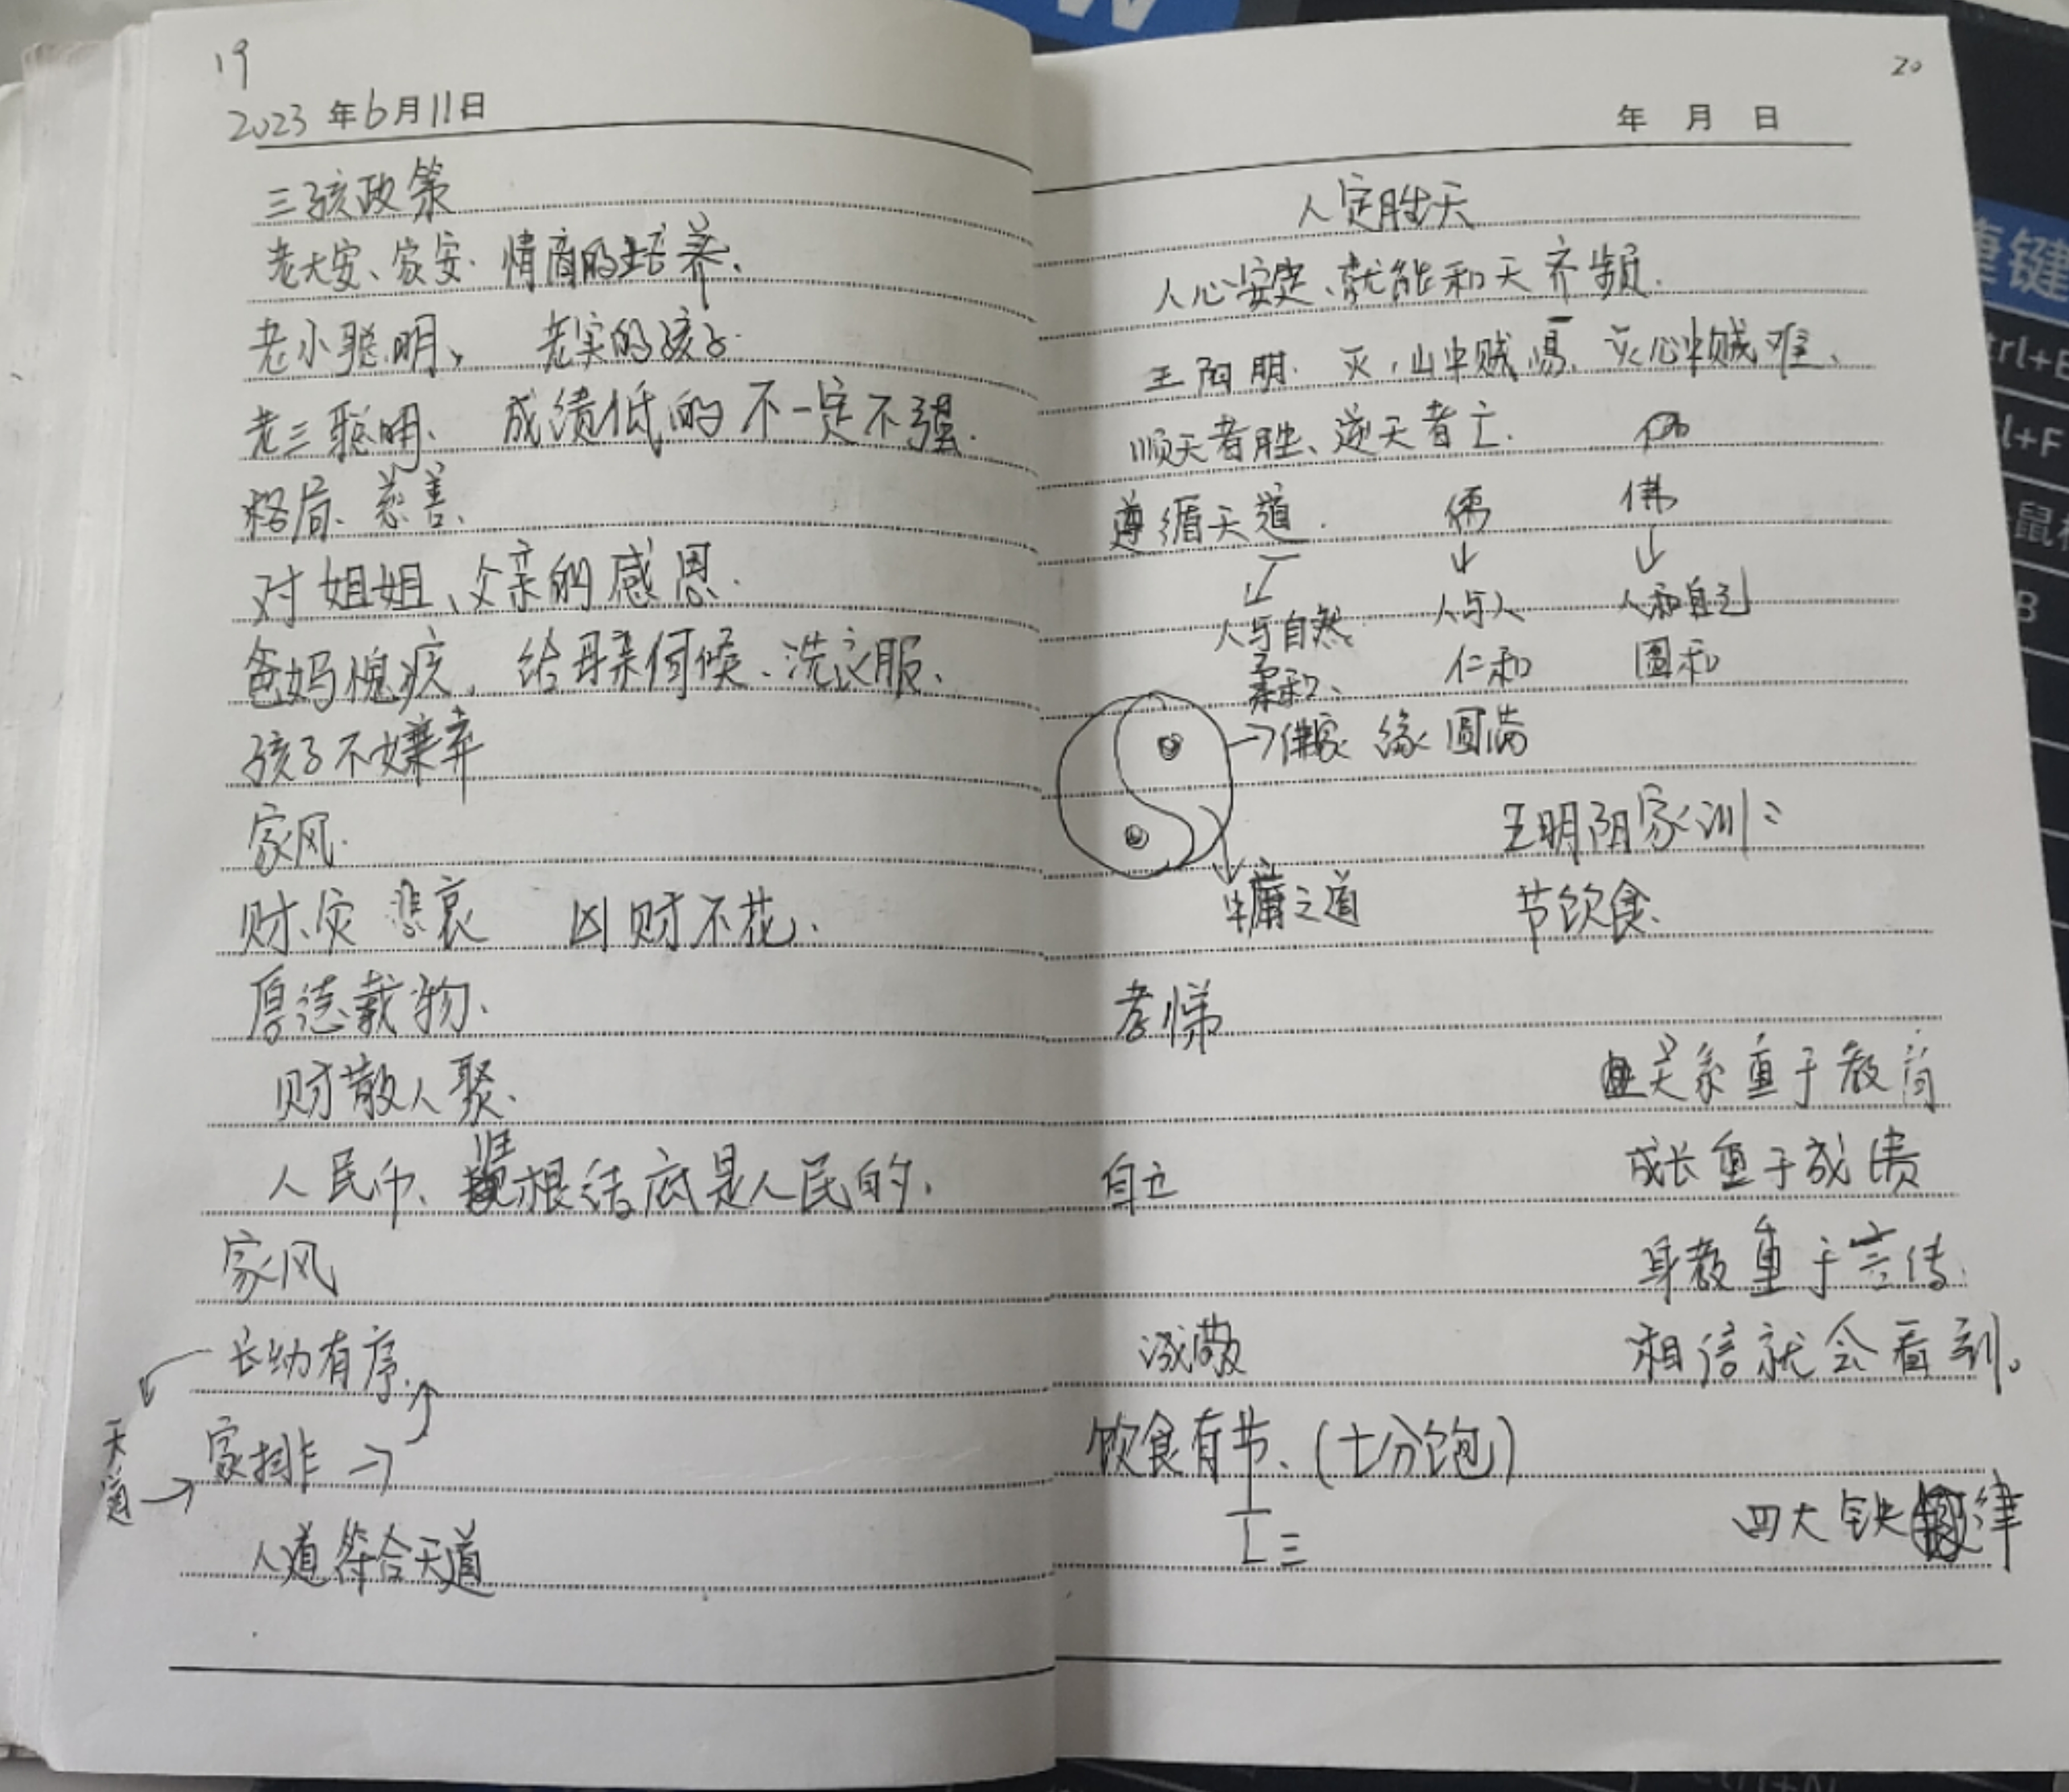 19
2023年6月11日
三孩政策
老大安、家安. 情商的培养.
老小聪明、 老实的孩子.
老三聪明、 成绩低的不一定不强.
格局、慈善、
对姐姐、父亲的感恩.
爸妈愧疚, 给母亲伺候、洗衣服、
孩子不嫌弃
家风.
财、灾 悲哀 凶财不花、
厚德载物、
财散人聚.
人民币、归根结底是人民的.
家风
长幼有序.
天道→家排→
人道符合天道
20
年 月 日
人定胜天
人心安定、就能和天齐频.
王阳明. 灭山中贼易、灭心中贼难、
顺天者胜、逆天者亡.
遵循天道. 儒 佛
人与自然 人与人 人和自己
柔和、 仁和 圆和
→佛家 缘 圆满
王明阳家训:
中庸之道 节饮食.
孝悌
关系重于教育
自立 成长重于成绩
身教重于言传.
诚敬 相信就会看到。
饮食有节、(七分饱)
四大铁律
ctrl+E
l+F
B